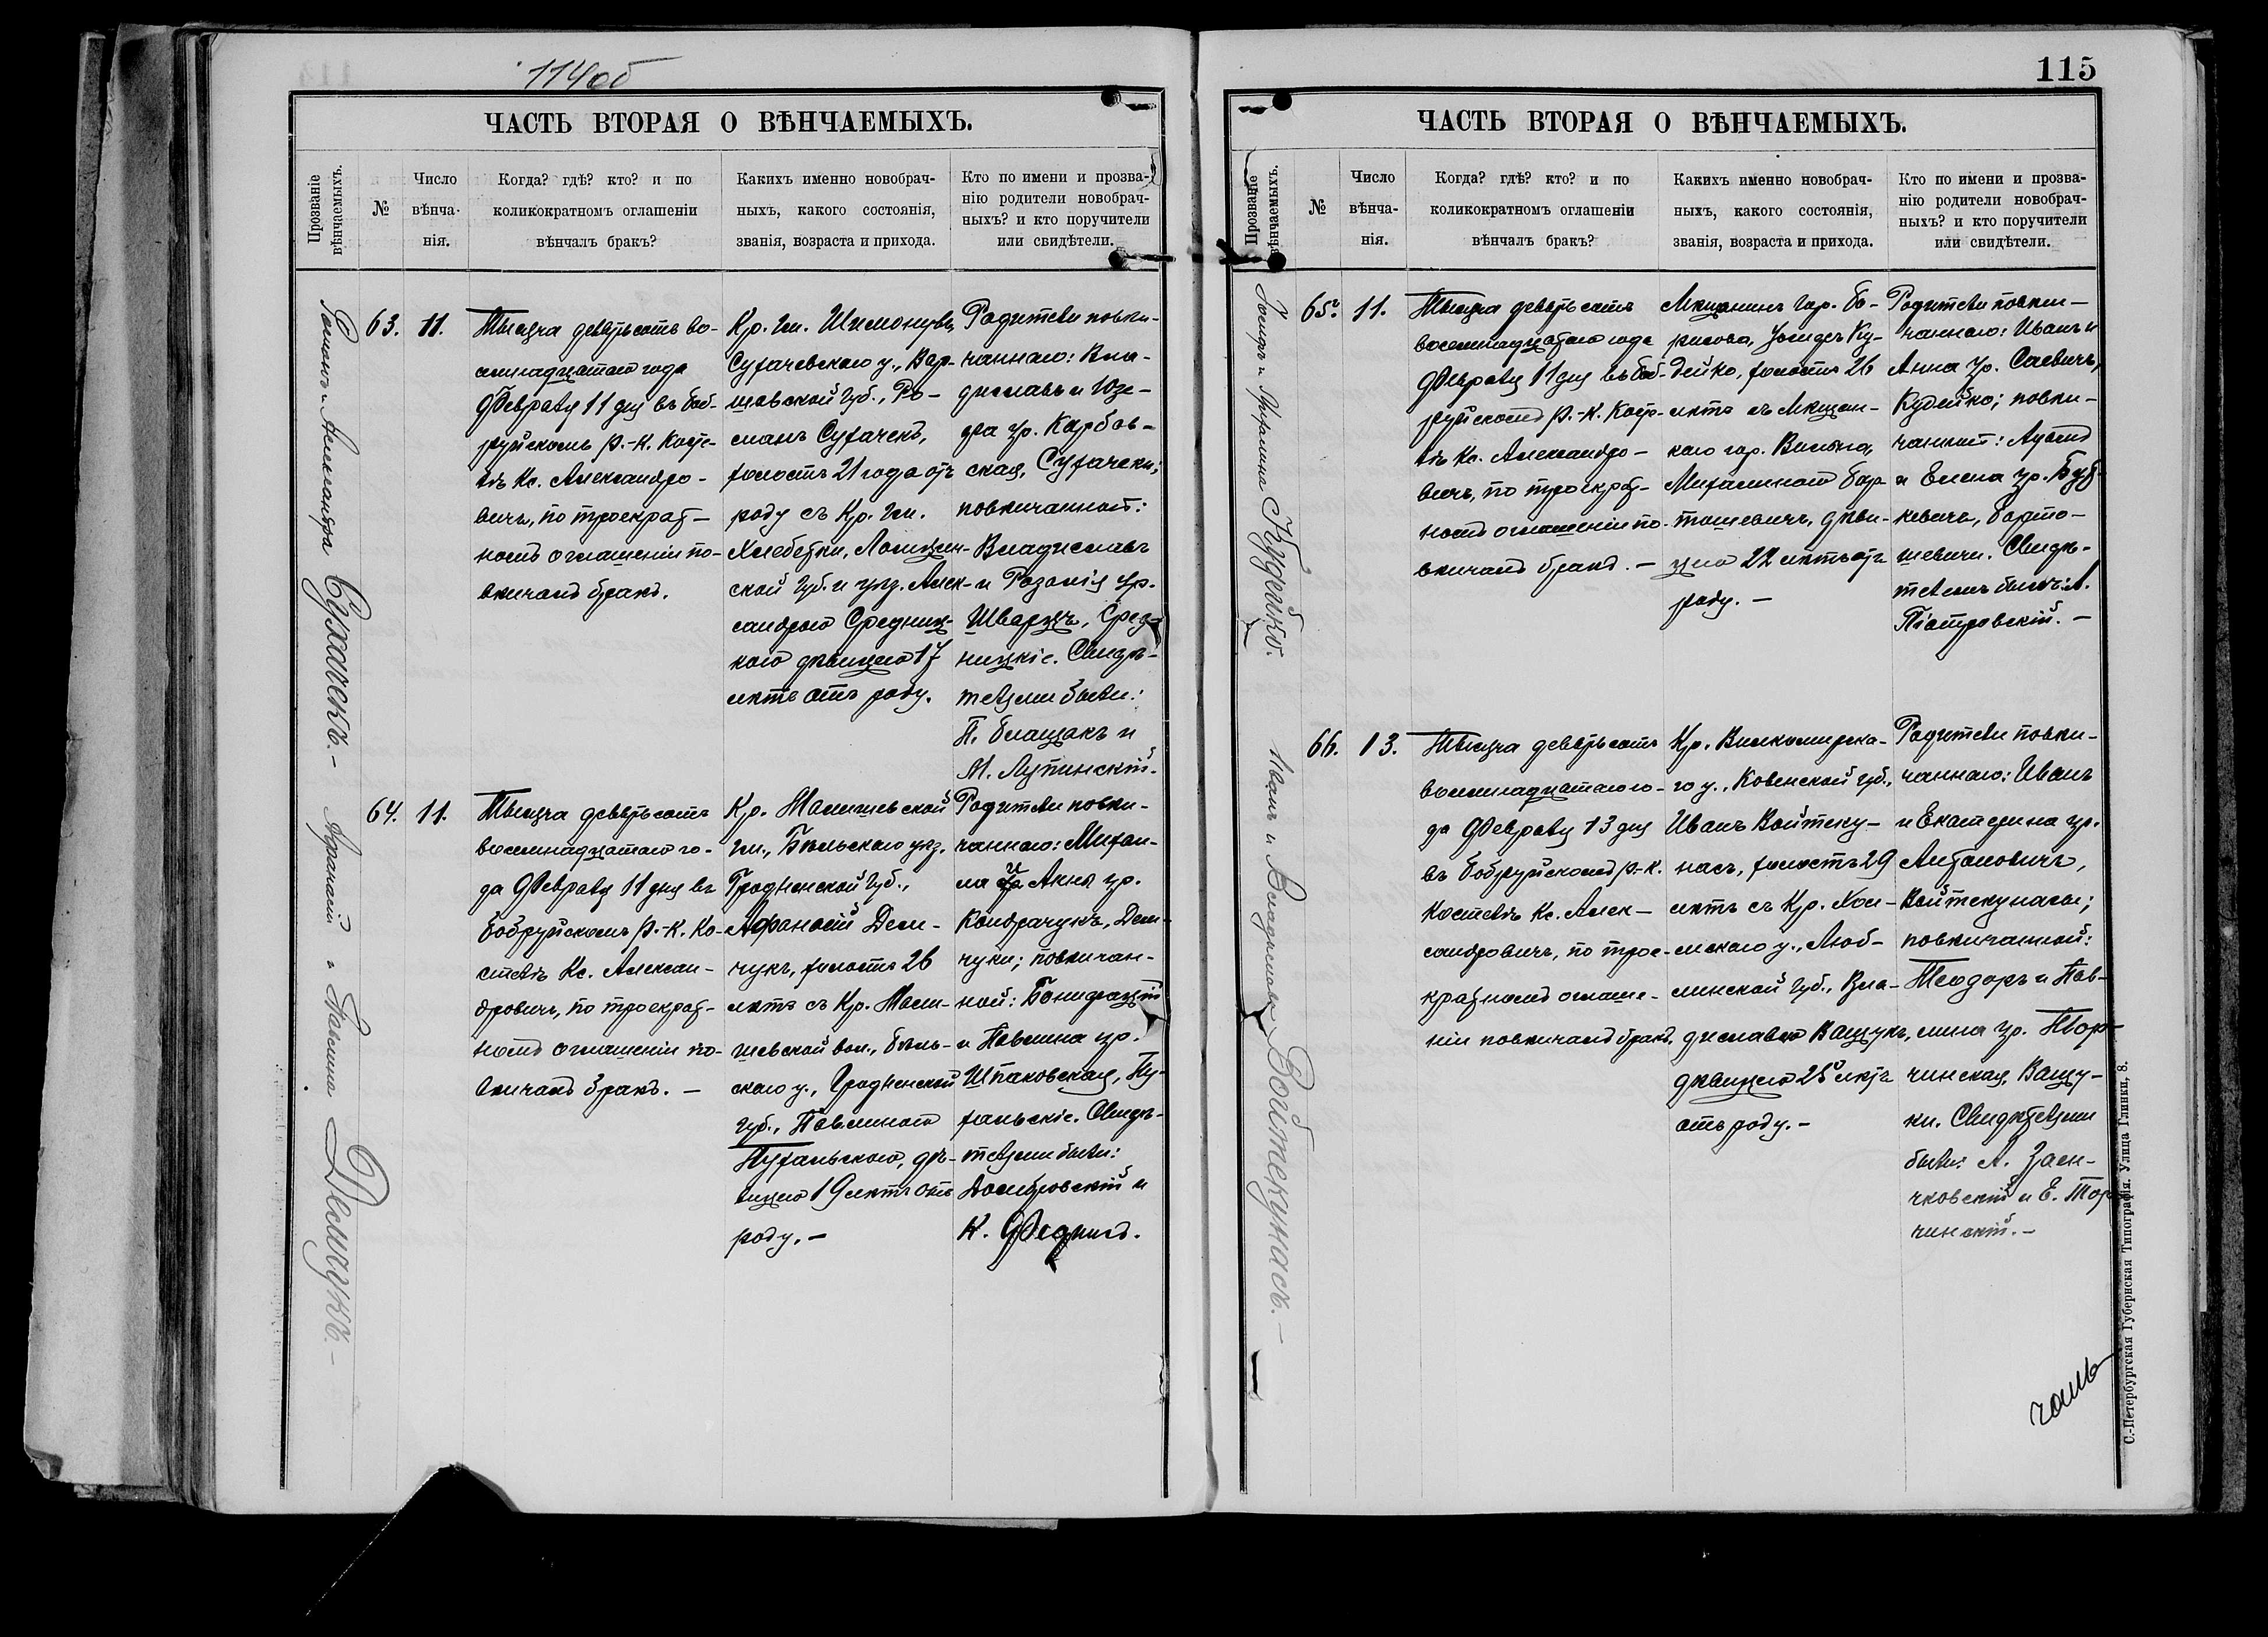 114об
ЧАСТЬ ВТОРАЯ О ВѢНЧАЕМЫХЪ.
Прозваніе вѣнчаемыхъ.
№
Число вѣнча-нія.
Когда? гдѣ? кто? и по
коликократномъ оглашеніи
вѣнчалъ бракъ?
Какихъ именно новобрач-
ныхъ, какого состоянія,
званія, возраста и прихода.
Кто по имени и прозва-
нію родители новобрач-
ныхъ? и кто поручители
или свидѣтели.
Романъ и Александра Сухачекъ. –
63.
11.
Тысяча девятьсотъ во-
семнадцатаго года
Февраля 11 дня въ Боб-
руйскомъ р.-к. косте-
лѣ Кс. Александро-
вичъ, по троекрат-
номъ оглашеніи по-
вѣнчалъ бракъ.
Кр. гм.
Сухачевскаго у., Вар-
шавской губ., Ро-
манъ Сухачекъ,
холостъ 21 года отъ
роду съ Кр. гм.
Хлебетки, Ломжин-
ской губ. и уѣз. Алек-
сандрою Средниц-
кою дѣвицею 17
лѣтъ отъ роду.
Родители повѣн-
чаннаго: Вла-
диславъ и Юзе-
фа ур. Карбов-
ская, Сухачеки;
повѣнчанной:
Владиславъ
и Розалія ур.
Шварцъ, Сред-
ницкіе. Свидѣ-
телями были:
П. Блащакъ и
М. Лупинскій.
Афанасій и Павлина Демчукъ. –
64.
11.
Тысяча девятьсотъ
восемнадцатаго го-
да Февраля 11 дня въ
Бобруйскомъ р.-к. ко-
стелѣ Кс. Алексан-
дровичъ, по троекрат-
номъ оглашеніи по-
вѣнчалъ бракъ. –
Кр.
гм., Бѣльскаго уѣз.
Гродненской губ.,
Афанасій Дем-
чукъ, холостъ 26
лѣтъ съ Кр.
вол., Бѣль-
скаго у., Гродненской
губ., Павлиною
Пухальскою, дѣ-
вицею 19 лѣтъ отъ
роду. –
Родители повѣн-
чаннаго: Михаи-
ла и Анна ур.
Кондрачукъ, Дем-
чуки; повѣнчан-
ной: Бонифацій
и Павлина ур.
Шпаковская, Пу-
хальскіе. Свидѣ-
телями были:
Домбровскій и
115
ЧАСТЬ ВТОРАЯ О ВѢНЧАЕМЫХЪ.
Прозваніе вѣнчаемыхъ.
№
Число вѣнча-нія.
Когда? гдѣ? кто? и по
коликократномъ оглашеніи
вѣнчалъ бракъ?
Какихъ именно новобрач-
ныхъ, какого состоянія,
званія, возраста и прихода.
Кто по имени и прозва-
нію родители новобрач-
ныхъ? и кто поручители
или свидѣтели.
и Михалина Кудейко.
65.
11.
Тысяча девятьсотъ
восемнадцатаго года
Февраля 11 дня въ Боб-
руйскомъ р.-к. косте-
лѣ Кс. Александро-
вичъ, по троекрат-
номъ оглашеніи по-
вѣнчалъ бракъ. –
Мѣщанинъ гор. Бо-
рисова, Ку-
дейко, холостъ 26
лѣтъ съ мѣщан-
кою гор. Вильна,
Михалиною Бар-
тошевичъ, дѣви-
цею 22 лѣтъ отъ
роду. –
Родители повѣн-
чаннаго: Иванъ и
Анна ур. Саевичъ,
Кудейко; повѣн-
чанной:
и Елена ур.
Барто-
шевичи. Свидѣ-
телемъ былъ: А.
Піотровскій. –
Иванъ и Владислава Войтекунасъ. –
66.
13.
Тысяча девятьсотъ
восемнадцатаго го-
да Февраля 13 дня
въ Бобруйскомъ р.-к.
костелѣ Кс. Алек-
сандровичъ, по трое-
кратномъ оглаше-
ніи повѣнчалъ бракъ.
Кр. Вилкомирска-
го у., Ковенской губ.,
Иванъ Войтеку-
насъ, холостъ 29
лѣтъ съ Кр. Хол-
мскаго у., Люб-
линской губ., Вла-
диславою Ващукъ,
дѣвицею 25 лѣтъ
отъ роду. –
Родители повѣн-
чаннаго: Иванъ
и Екатерина ур.
Антоновичъ,
Войтекунасы;
повѣнчанной:
Теодоръ и Пав-
лина ур. Твор-
чинская, Ващу-
ки. Свидѣтелями
были: А. Заен-
чковскій и Е. Тор-
чинскій. –
С.-Петербургская Губернская Типографія. Улица Глинки, 8.